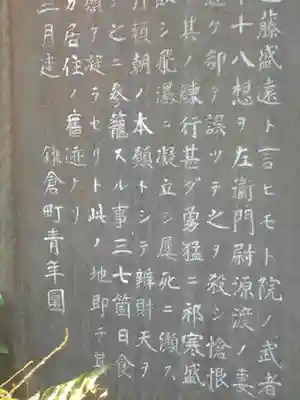 藤盛遠ト言ヒモト院ノ武者
十八想ヲ左衞門尉源渡ノ妻
ゲ却ヲ誤ツテ之ヲ殺シ愴恨
其ノ練行甚ダ勇猛ニ祁寒盛
シ飛瀑ニ凝立シ屢死ニ瀕ス
頼朝ノ本願トシテ辨財天ヲ
之ニ參籠スル事三七箇日食
願ヲ凝ラセリト此ノ地卽チ其
ガ居住ノ舊迹ナリ
三月建 鎌倉町青年團